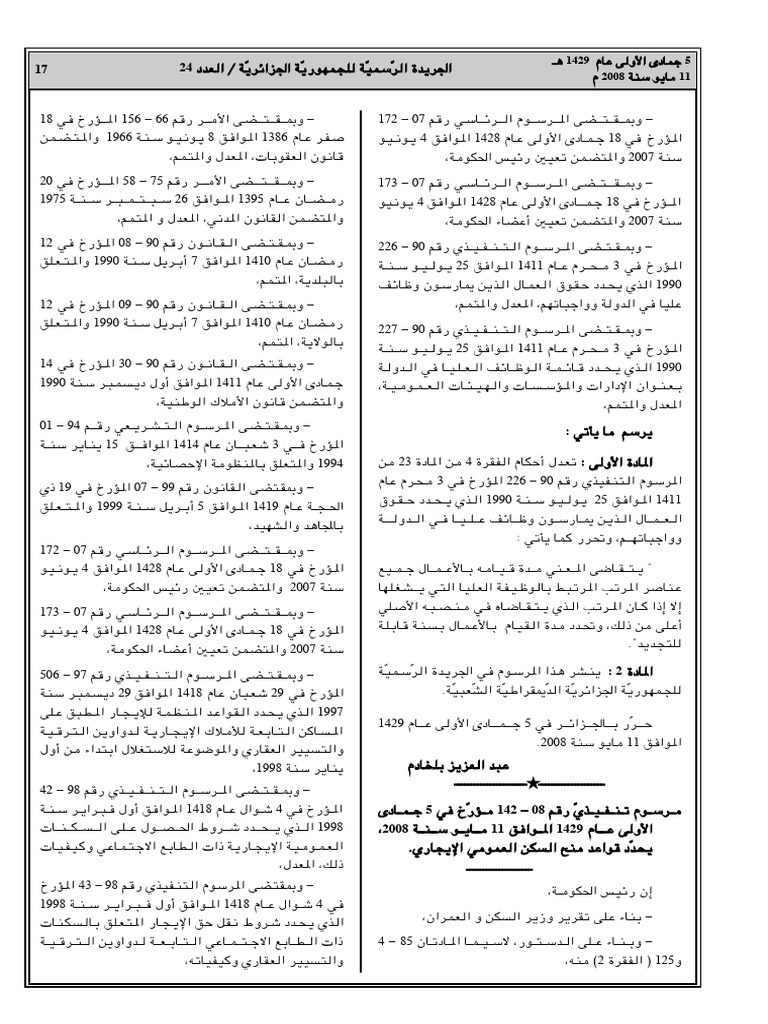 5 جمادى الأولى عام 1429 هـ
11 مايو سنة 2008 م
الجريدة الرّسميّة للجمهوريّة الجزائريّة / العدد 24
17
– وبمقتضى المرسوم الرئاسي رقم 07 – 172
المؤرخ في 18 جمادى الأولى عام 1428 الموافق 4 يونيو
سنة 2007 والمتضمن تعيين رئيس الحكومة،
– وبمقتضى المرسوم الرئاسي رقم 07 – 173
المؤرخ في 18 جمادى الأولى عام 1428 الموافق 4 يونيو
سنة 2007 والمتضمن تعيين أعضاء الحكومة،
– وبمقتضى المرسوم التنفيذي رقم 90 – 226
المؤرخ في 3 محرم عام 1411 الموافق 25 يوليو سنة
1990 الذي يحدد حقوق العمال الذين يمارسون وظائف
عليا في الدولة وواجباتهم، المعدل والمتمم،
– وبمقتضى المرسوم التنفيذي رقم 90 – 227
المؤرخ في 3 محرم عام 1411 الموافق 25 يوليو سنة
1990 الذي يحدد قائمة الوظائف العليا في الدولة
بعنوان الإدارات والمؤسسات والهيئات العمومية،
المعدل والمتمم،
يرسم ما يأتي :
المادة الأولى : تعدل أحكام الفقرة 4 من المادة 23 من
المرسوم التنفيذي رقم 90 – 226 المؤرخ في 3 محرم عام
1411 الموافق 25 يوليو سنة 1990 الذي يحدد حقوق
العمال الذين يمارسون وظائف عليا في الدولة
وواجباتهم، وتحرر كما يأتي :
" يتقاضى المعني مدة قيامه بالأعمال جميع
عناصر المرتب المرتبط بالوظيفة العليا التي يشغلها
إلا إذا كان المرتب الذي يتقاضاه في منصبه الأصلي
أعلى من ذلك، وتحدد مدة القيام بالأعمال بسنة قابلة
للتجديد".
المادة 2 : ينشر هذا المرسوم في الجريدة الرّسميّة
للجمهوريّة الجزائريّة الدّيمقراطيّة الشّعبيّة.
حرّر بالجزائر في 5 جمادى الأولى عام 1429
الموافق 11 مايو سنة 2008.
عبد العزيز بلخادم
مرسوم تنفيذيّ رقم 08 – 142 مؤرّخ في 5 جمادى
الأولى عام 1429 الموافق 11 مايو سنة 2008،
يحدّد قواعد منح السكن العمومي الإيجاري.
إن رئيس الحكومة،
– بناء على تقرير وزير السكن و العمران،
– وبناء على الدستور، لاسيما المادتان 85 – 4
و125 ( الفقرة 2) منه،
– وبمقتضى الأمر رقم 66 – 156 المؤرخ في 18
صفر عام 1386 الموافق 8 يونيو سنة 1966 والمتضمن
قانون العقوبات، المعدل والمتمم،
– وبمقتضى الأمر رقم 75 – 58 المؤرخ في 20
رمضان عام 1395 الموافق 26 سبتمبر سنة 1975
والمتضمن القانون المدني، المعدل و المتمم،
– وبمقتضى القانون رقم 90 – 08 المؤرخ في 12
رمضان عام 1410 الموافق 7 أبريل سنة 1990 والمتعلق
بالبلدية، المتمم،
– وبمقتضى القانون رقم 90 – 09 المؤرخ في 12
رمضان عام 1410 الموافق 7 أبريل سنة 1990 والمتعلق
بالولاية، المتمم،
– وبمقتضى القانون رقم 90 – 30 المؤرخ في 14
جمادى الأولى عام 1411 الموافق أول ديسمبر سنة 1990
والمتضمن قانون الأملاك الوطنية،
– وبمقتضى المرسوم التشريعي رقم 94 – 01
المؤرخ في 3 شعبان عام 1414 الموافق 15 يناير سنة
1994 والمتعلق بالمنظومة الإحصائية،
– وبمقتضى القانون رقم 99 – 07 المؤرخ في 19 ذي
الحجة عام 1419 الموافق 5 أبريل سنة 1999 والمتعلق
بالمجاهد والشهيد،
– وبمقتضى المرسوم الرئاسي رقم 07 – 172
المؤرخ في 18 جمادى الأولى عام 1428 الموافق 4 يونيو
سنة 2007 والمتضمن تعيين رئيس الحكومة،
– وبمقتضى المرسوم الرئاسي رقم 07 – 173
المؤرخ في 18 جمادى الأولى عام 1428 الموافق 4 يونيو
سنة 2007 والمتضمن تعيين أعضاء الحكومة،
– وبمقتضى المرسوم التنفيذي رقم 97 – 506
المؤرخ في 29 شعبان عام 1418 الموافق 29 ديسمبر سنة
1997 الذي يحدد القواعد المنظمة للإيجار المطبق على
المساكن التابعة للأملاك الإيجارية لدواوين الترقية
والتسيير العقاري والموضوعة للاستغلال ابتداء من أول
يناير سنة 1998،
– وبمقتضى المرسوم التنفيذي رقم 98 – 42
المؤرخ في 4 شوال عام 1418 الموافق أول فبراير سنة
1998 الذي يحدد شروط الحصول على السكنات
العمومية الإيجارية ذات الطابع الاجتماعي وكيفيات
ذلك، المعدل،
– وبمقتضى المرسوم التنفيذي رقم 98 – 43 المؤرخ
في 4 شوال عام 1418 الموافق أول فبراير سنة 1998
الذي يحدد شروط نقل حق الإيجار المتعلق بالسكنات
ذات الطابع الاجتماعي التابعة لدواوين الترقية
والتسيير العقاري وكيفياته،